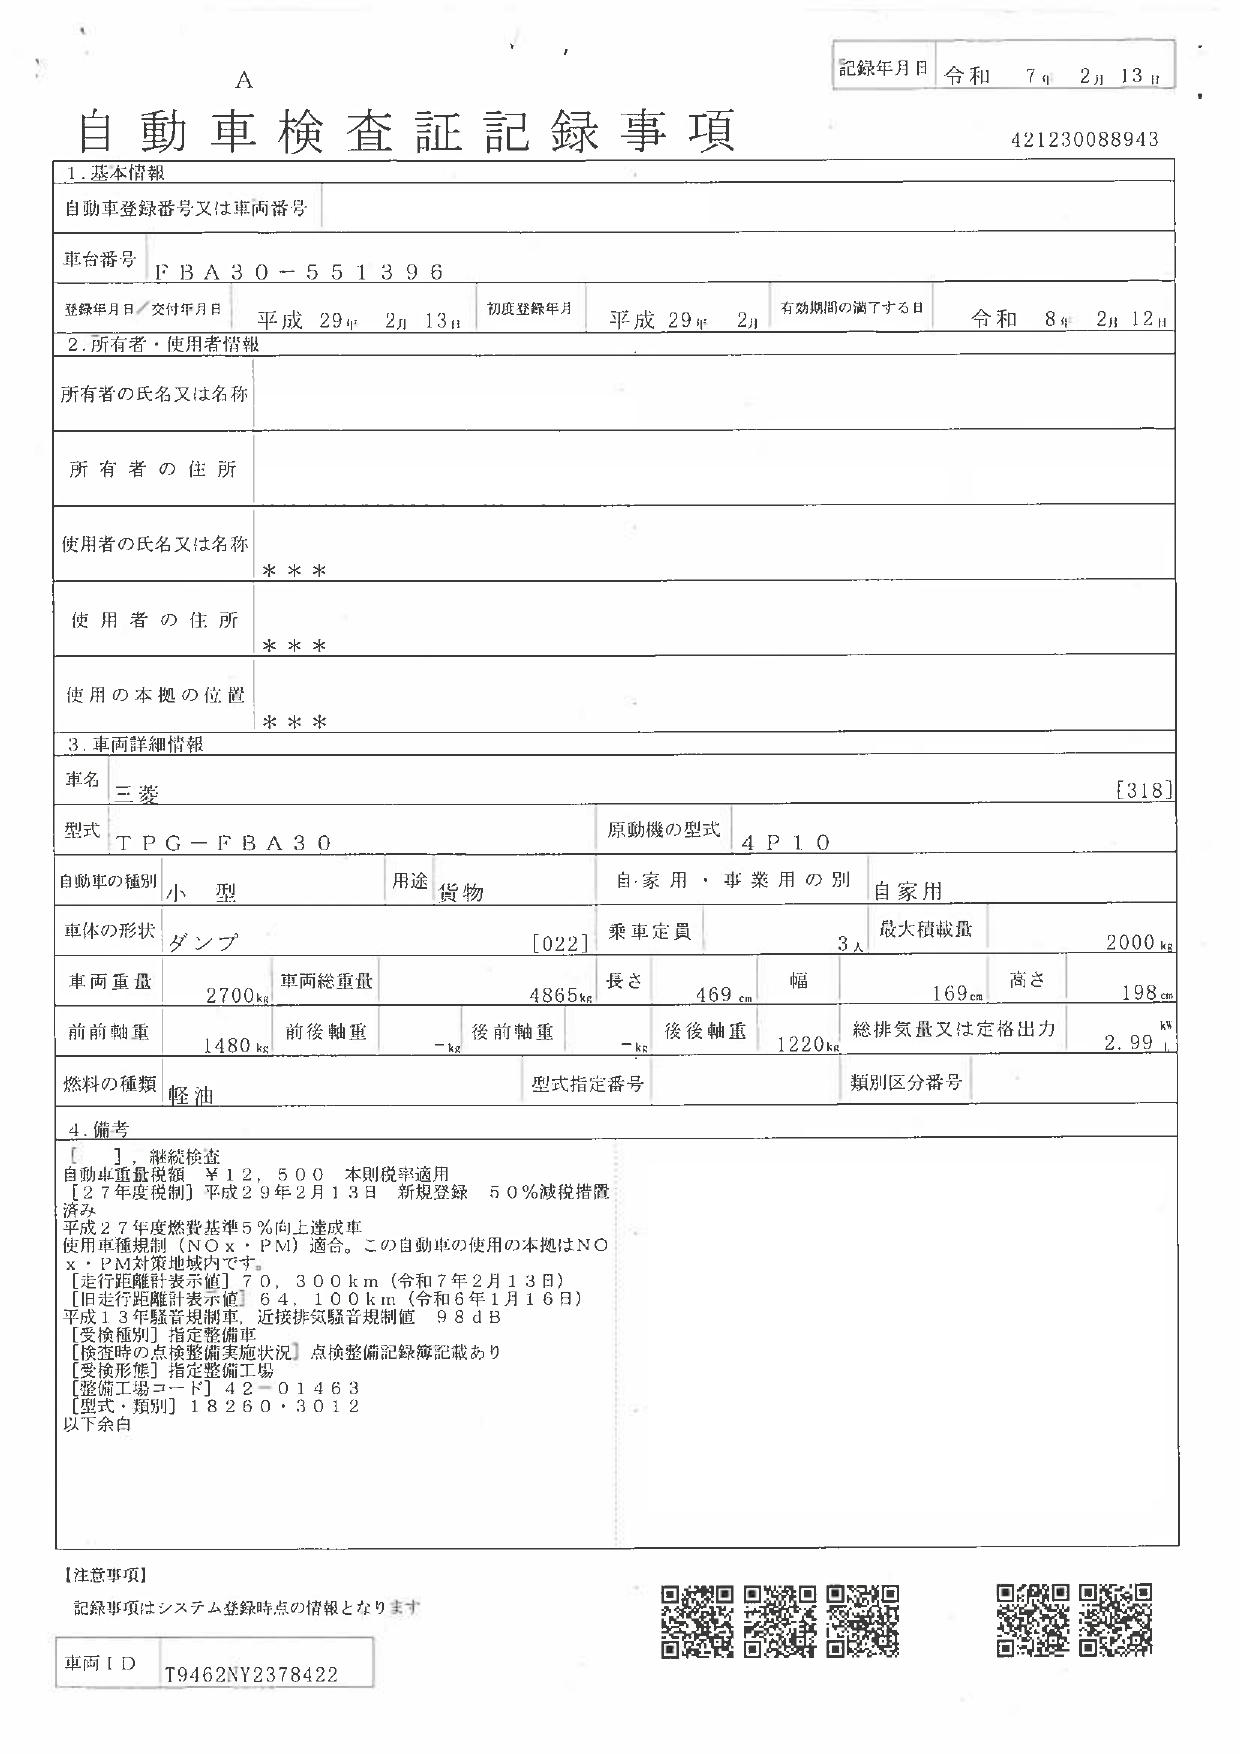 記録年月日 令和 7年 2月 13日
A
自動車検査証記録事項
421230088943
1.基本情報
自動車登録番号又は車両番号
車台番号 ＦＢＡ３０－５５１３９６
登録年月日／交付年月日 平成 29年 2月 13日 初度登録年月 平成 29年 2月 有効期間の満了する日 令和 8年 2月 12日
2.所有者・使用者情報
所有者の氏名又は名称
所有者の住所
使用者の氏名又は名称 ＊＊＊
使用者の住所 ＊＊＊
使用の本拠の位置 ＊＊＊
3.車両詳細情報
車名 三菱 [318]
型式 ＴＰＧ－ＦＢＡ３０ 原動機の型式 ４Ｐ１０
自動車の種別 小型 用途 貨物 自家用・事業用の別 自家用
車体の形状 ダンプ [022] 乗車定員 3人 最大積載量 2000kg
車両重量 2700kg 車両総重量 4865kg 長さ 469cm 幅 169cm 高さ 198cm
前前軸重 1480kg 前後軸重 －kg 後前軸重 －kg 後後軸重 1220kg 総排気量又は定格出力 2.99 kW L
燃料の種類 軽油 型式指定番号 類別区分番号
4.備考
［　　］，継続検査
自動車重量税額　￥１２，５００　本則税率適用
［２７年度税制］平成２９年２月１３日　新規登録　５０％減税措置
済み
平成２７年度燃費基準５％向上達成車
使用車種規制（ＮＯｘ・ＰＭ）適合。この自動車の使用の本拠はＮＯ
ｘ・ＰＭ対策地域内です。
［走行距離計表示値］７０，３００ｋｍ（令和７年２月１３日）
［旧走行距離計表示値］６４，１００ｋｍ（令和６年１月１６日）
平成１３年騒音規制車，近接排気騒音規制値　９８ｄＢ
［受検種別］指定整備車
［検査時の点検整備実施状況］点検整備記録簿記載あり
［受検形態］指定整備工場
［整備工場コード］４２－０１４６３
［型式・類別］１８２６０・３０１２
以下余白
【注意事項】
記録事項はシステム登録時点の情報となります
車両ＩＤ T9462NY2378422